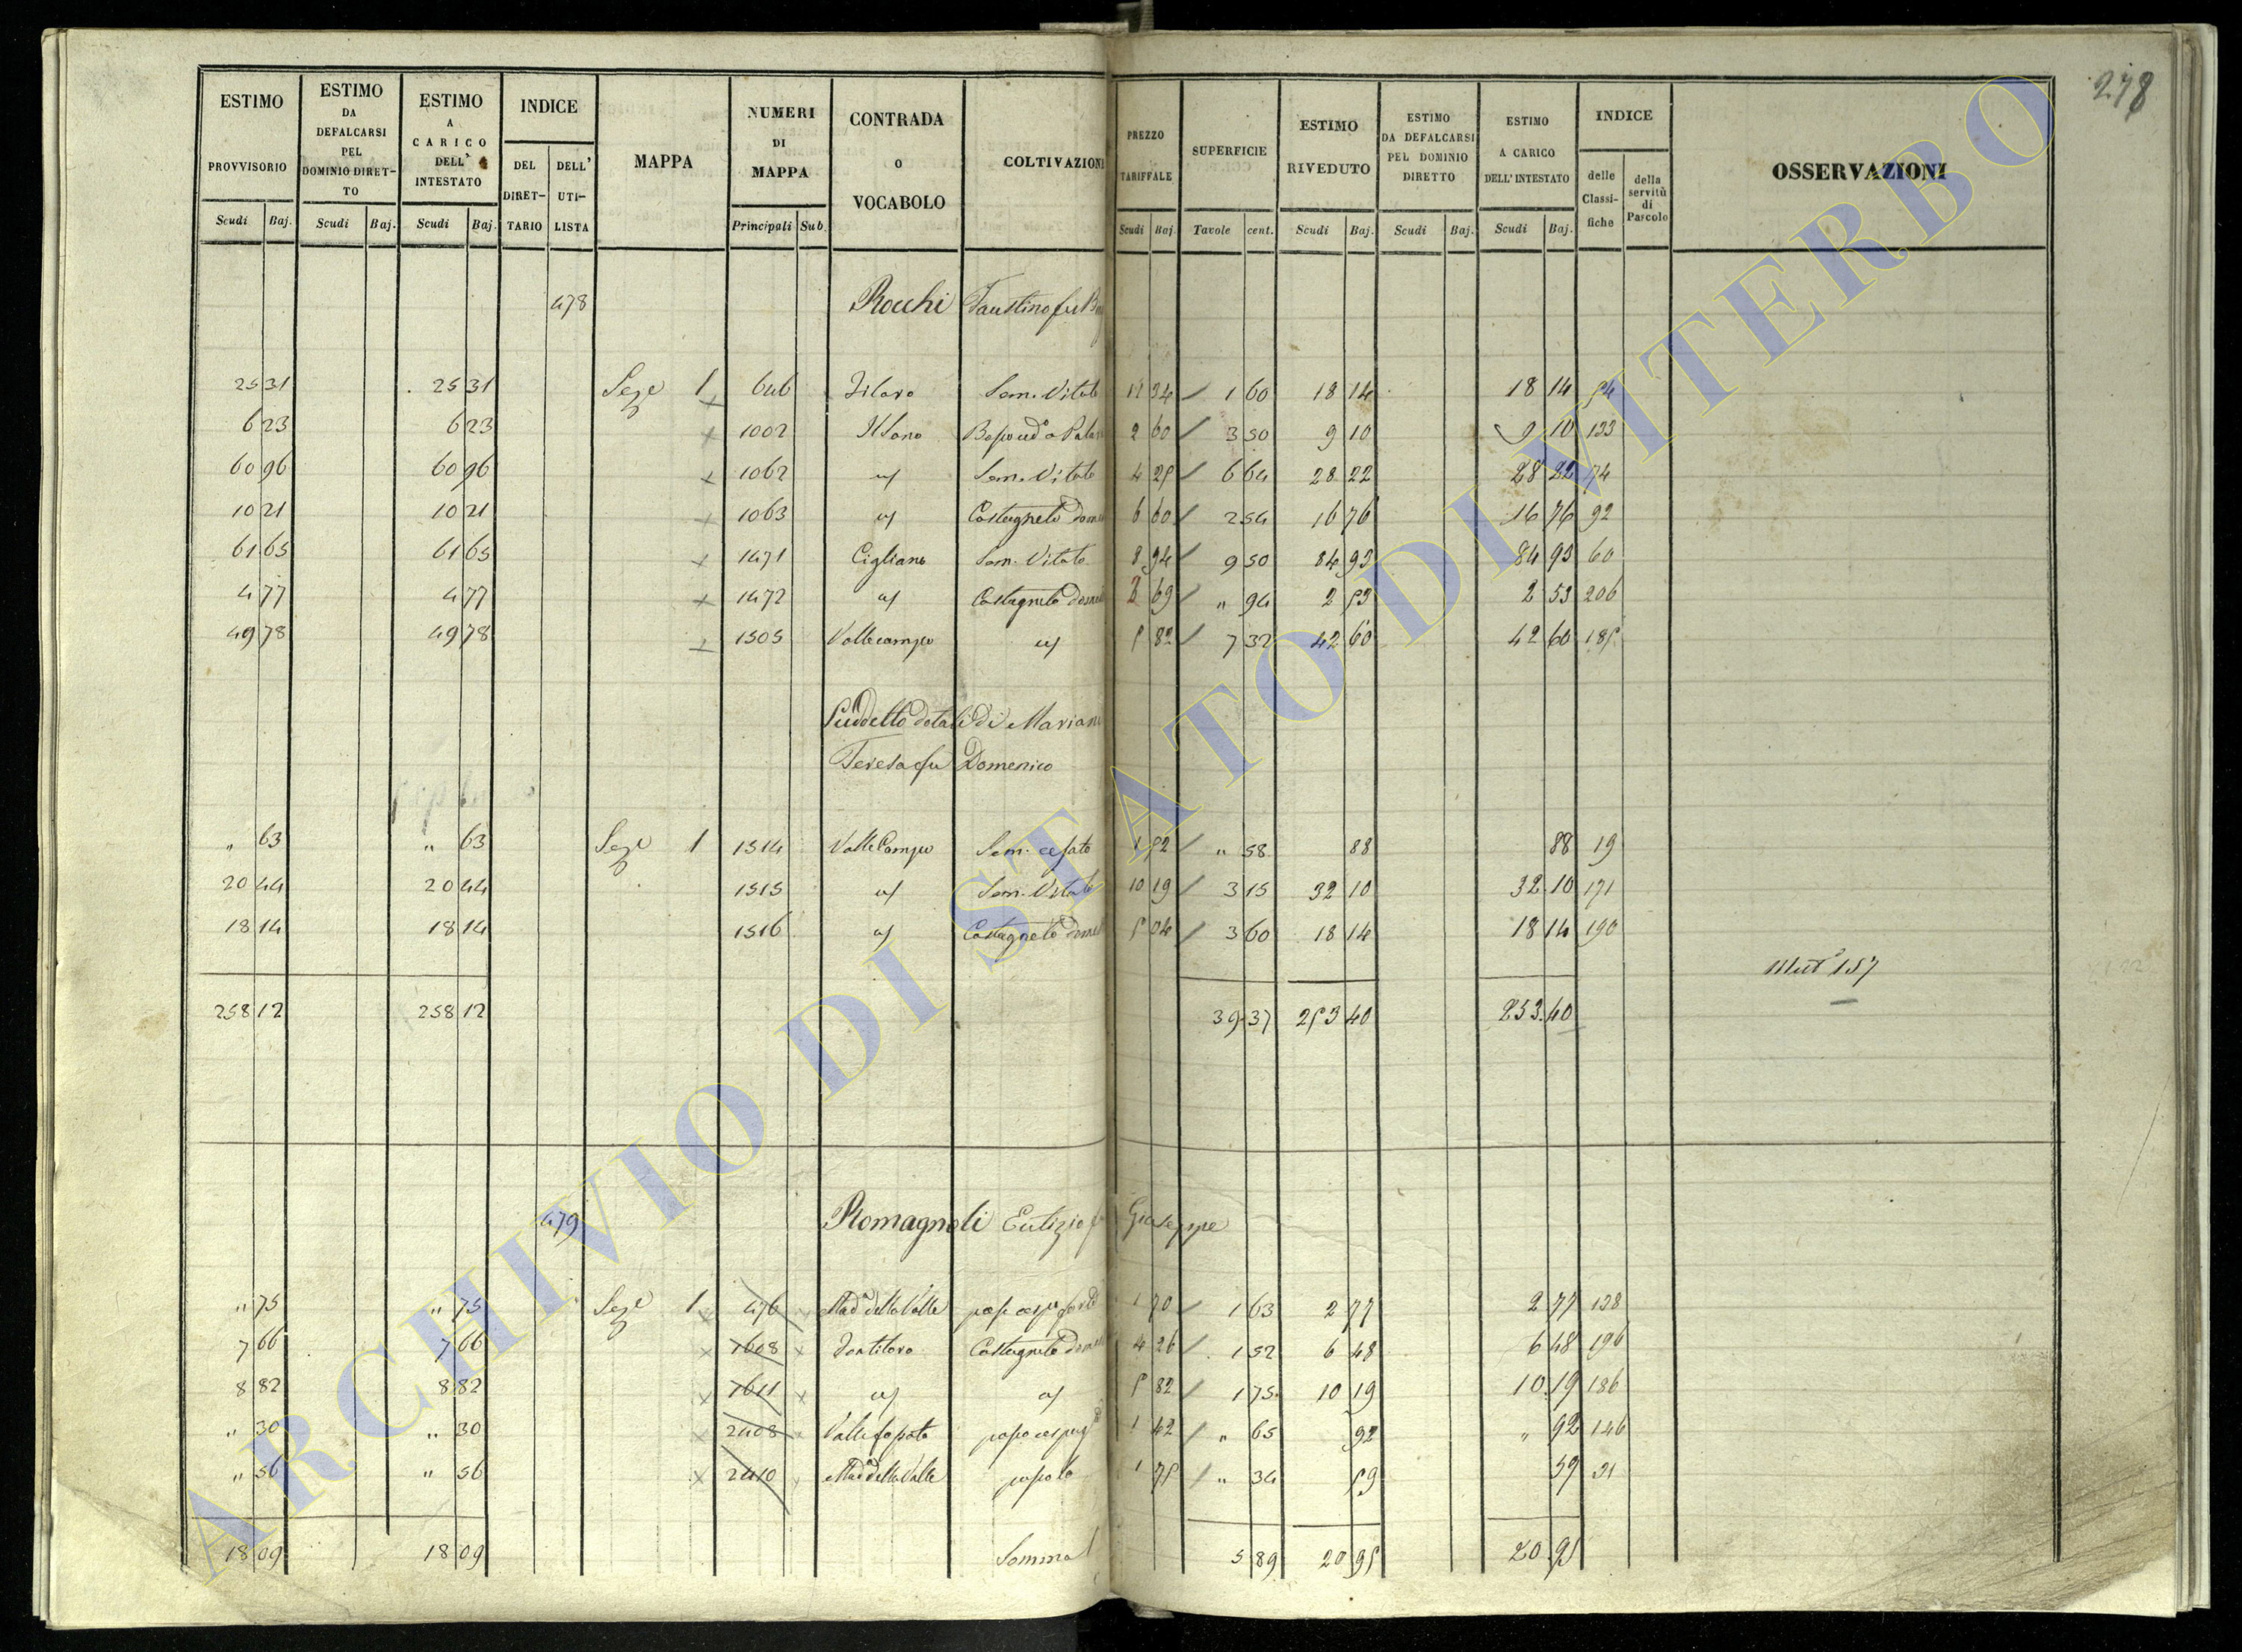 278
ESTIMO PROVVISORIO Scudi Baj.
ESTIMO DA DEFALCARSI PEL DOMINIO DIRETTO Scudi Baj.
ESTIMO A CARICO DELL' INTESTATO Scudi Baj.
INDICE DEL DIRETTARIO DELL' UTILISTA
MAPPA
NUMERI DI MAPPA Principali Sub.
CONTRADA o VOCABOLO
COLTIVAZIONI
PREZZO TARIFFALE Scudi Baj.
SUPERFICIE Tavole cent.
ESTIMO RIVEDUTO Scudi Baj.
ESTIMO DA DEFALCARSI PEL DOMINIO DIRETTO Scudi Baj.
ESTIMO A CARICO DELL'INTESTATO Scudi Baj.
INDICE delle Classifiche della servitù di Pascolo
OSSERVAZIONI
478 Rocchi Faustino fu
25 31 25 31 Seze 1 646 Sem. Vitato 11 34 1 60 18 14 18 14 54
6 23 6 23 1002 2 60 3 50 9 10 9 10 133
60 96 60 96 1062 Sem. Vitato 4 25 6 64 28 22 28 22 74
10 21 10 21 1063 Castagneto 6 60 2 54 16 76 16 76 92
61 65 61 65 1471 Cigliano Sem. Vitato 8 94 9 50 84 93 84 93 60
4 77 4 77 1472 Castagneto 2 69 " 94 2 53 2 53 206
49 78 49 78 1505 Vallecampo 5 82 7 32 42 60 42 60 185
Suddetto dotali di Mariani
Teresa fu Domenico
" 63 " 63 Seze 1 1514 Valle Campo Sem. 1 52 " 58 88 88 19
20 44 20 44 1515 Sem. Vitato 10 19 3 15 32 10 32 10 171
18 14 18 14 1516 Castagneto 5 04 3 60 18 14 18 14 190
Mut 157
258 12 258 12 39 37 253 40 253 40
479 Romagnoli Eutizio fu Giuseppe
" 75 " 75 Seze 1 476 Mad della Valle 1 70 1 63 2 77 2 77 138
7 66 7 66 1608 Castagneto 4 26 1 52 6 48 6 48 196
8 82 8 82 1611 5 82 1 75 10 19 10 19 186
" 30 " 30 2408 1 42 " 65 92 " 92 146
" 56 " 56 2410 Mad della Valle 1 75 " 34 59 59 31
18 09 18 09 Somma 5 89 20 95 20 95
ARCHIVIO DI STATO DI VITERBO